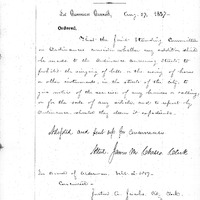 In Common Council, Aug. 27, 1857.
Ordered,
That the Joint Standing Committee
on Ordinances consider whether any addition shall
be made to the Ordinance concerning Streets, to
prohibit the ringing of bells or the using of horns or
other instruments, in the streets of the city, to
give notice of the exercise of any business or calling,
or for the sale of any article, and to report by
Ordinance should they deem it expedient.
Adopted and sent up for concurrence
Attest. James M. Clerk
In Board of Aldermen. 1857.
Concurred.
Joshua City Clerk.